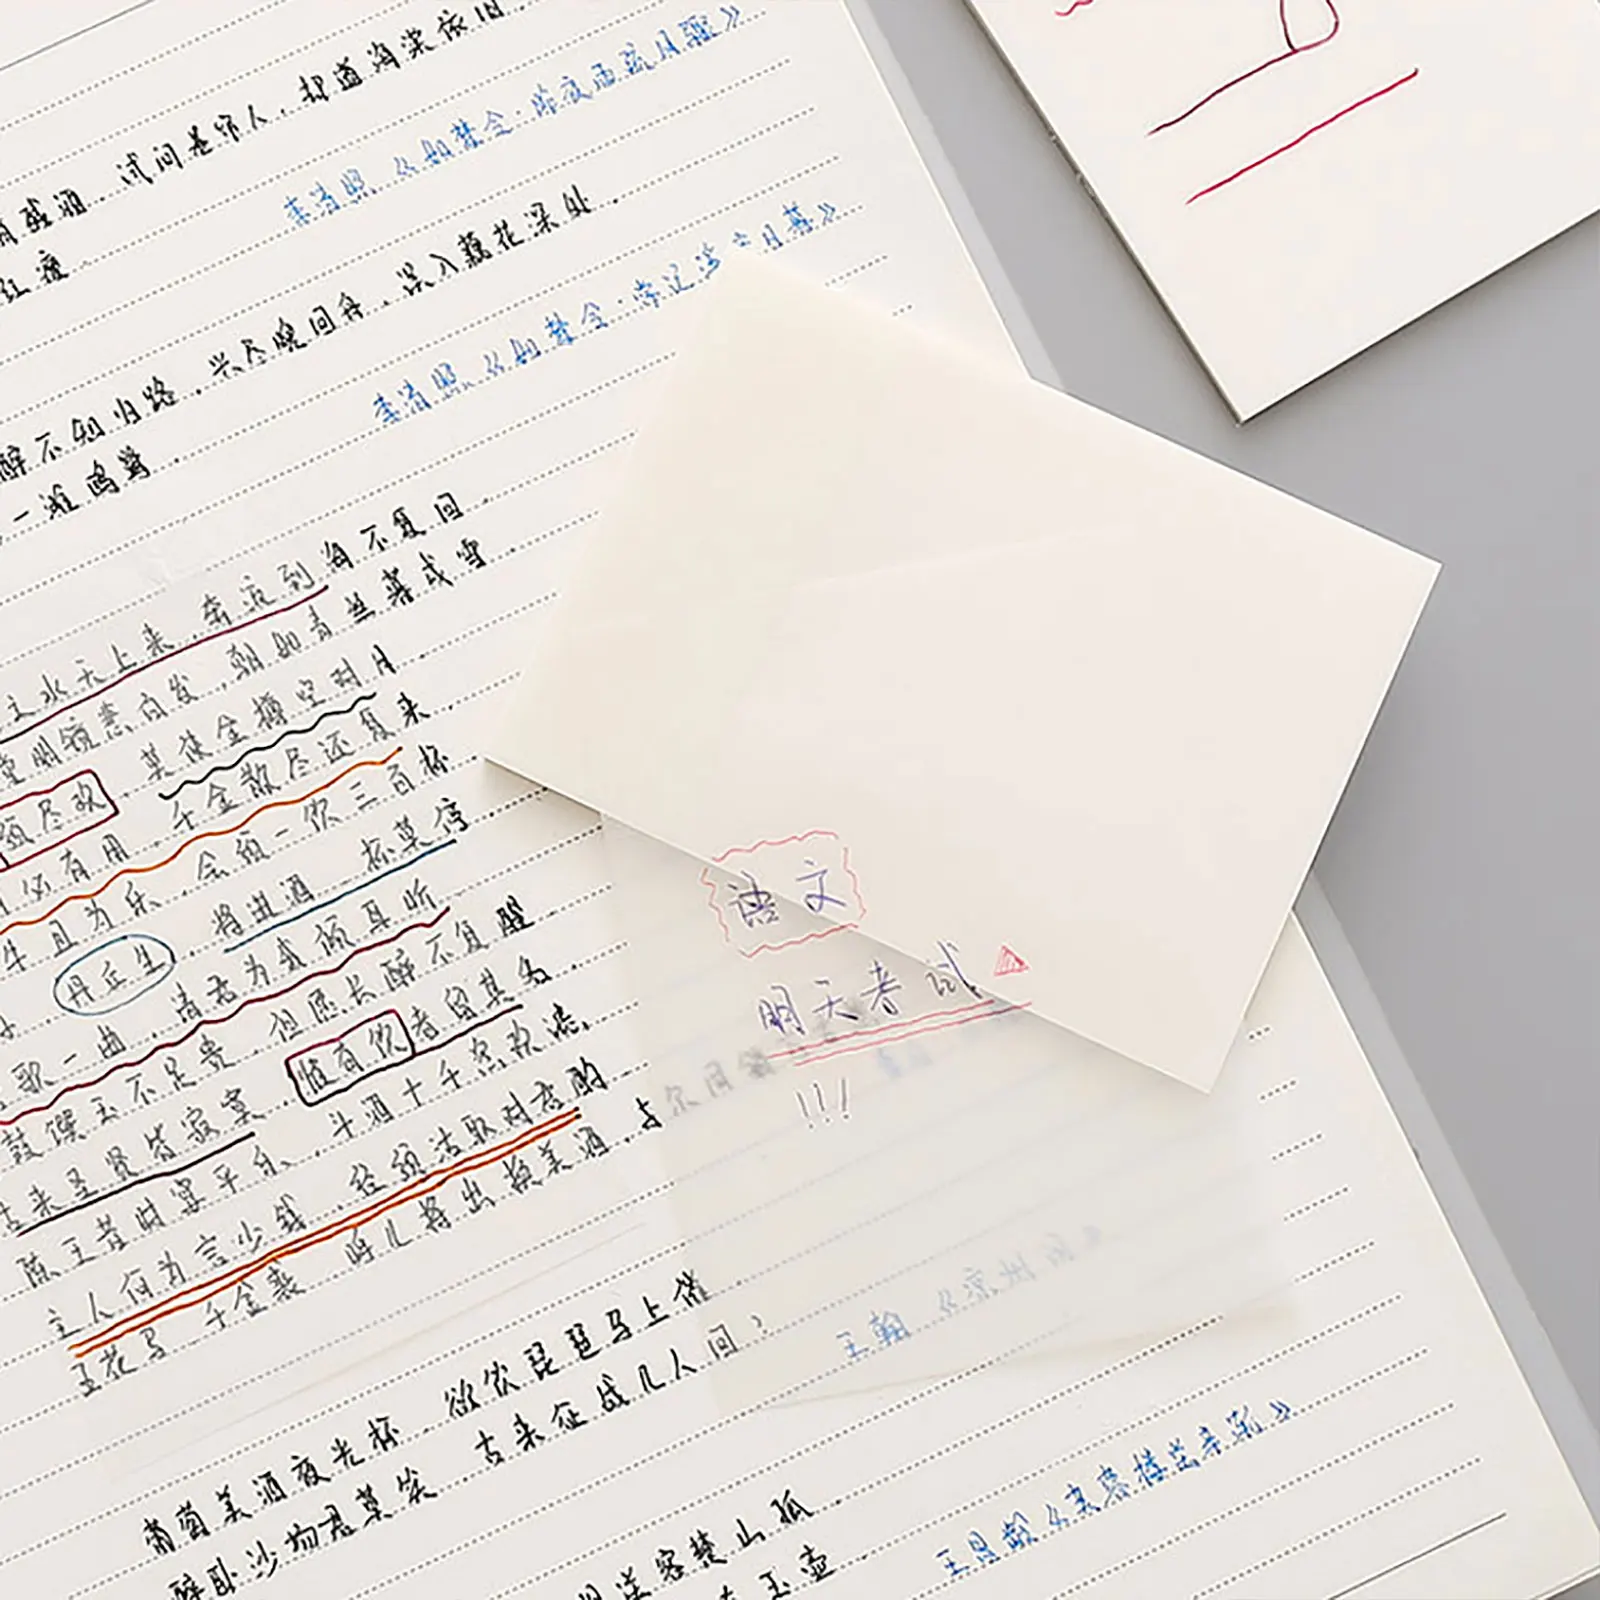 盛酒
试问卷帘人,却道海棠依旧
红瘦
李清照《如梦令·昨夜雨疏风骤》
醉不知归路,兴尽晚回舟,误入藕花深处
一滩鸥鹭
李清照《如梦令·常记溪亭日暮》
水天上来 奔流到海不复回
堂明镜悲白发,朝如青丝暮成雪
须尽欢 莫使金樽空对月
必有用 千金散尽还复来
牛且为乐,会须一饮三百杯
丹丘生,将进酒 杯莫停
歌一曲,请君为我倾耳听
鼓馔玉不足贵,但愿长醉不复醒
古来圣贤皆寂寞,惟有饮者留其名
陈王昔时宴平乐,斗酒十千恣欢谑
主人何为言少钱,径须沽取对君酌
五花马 千金裘 呼儿将出换美酒,与尔同销
语文
明天考试
!!!
葡萄美酒夜光杯 欲饮琵琶马上催
醉卧沙场君莫笑 古来征战几人回?
王翰《凉州词》
送客楚山孤
玉壶
王昌龄《芙蓉楼送辛渐》